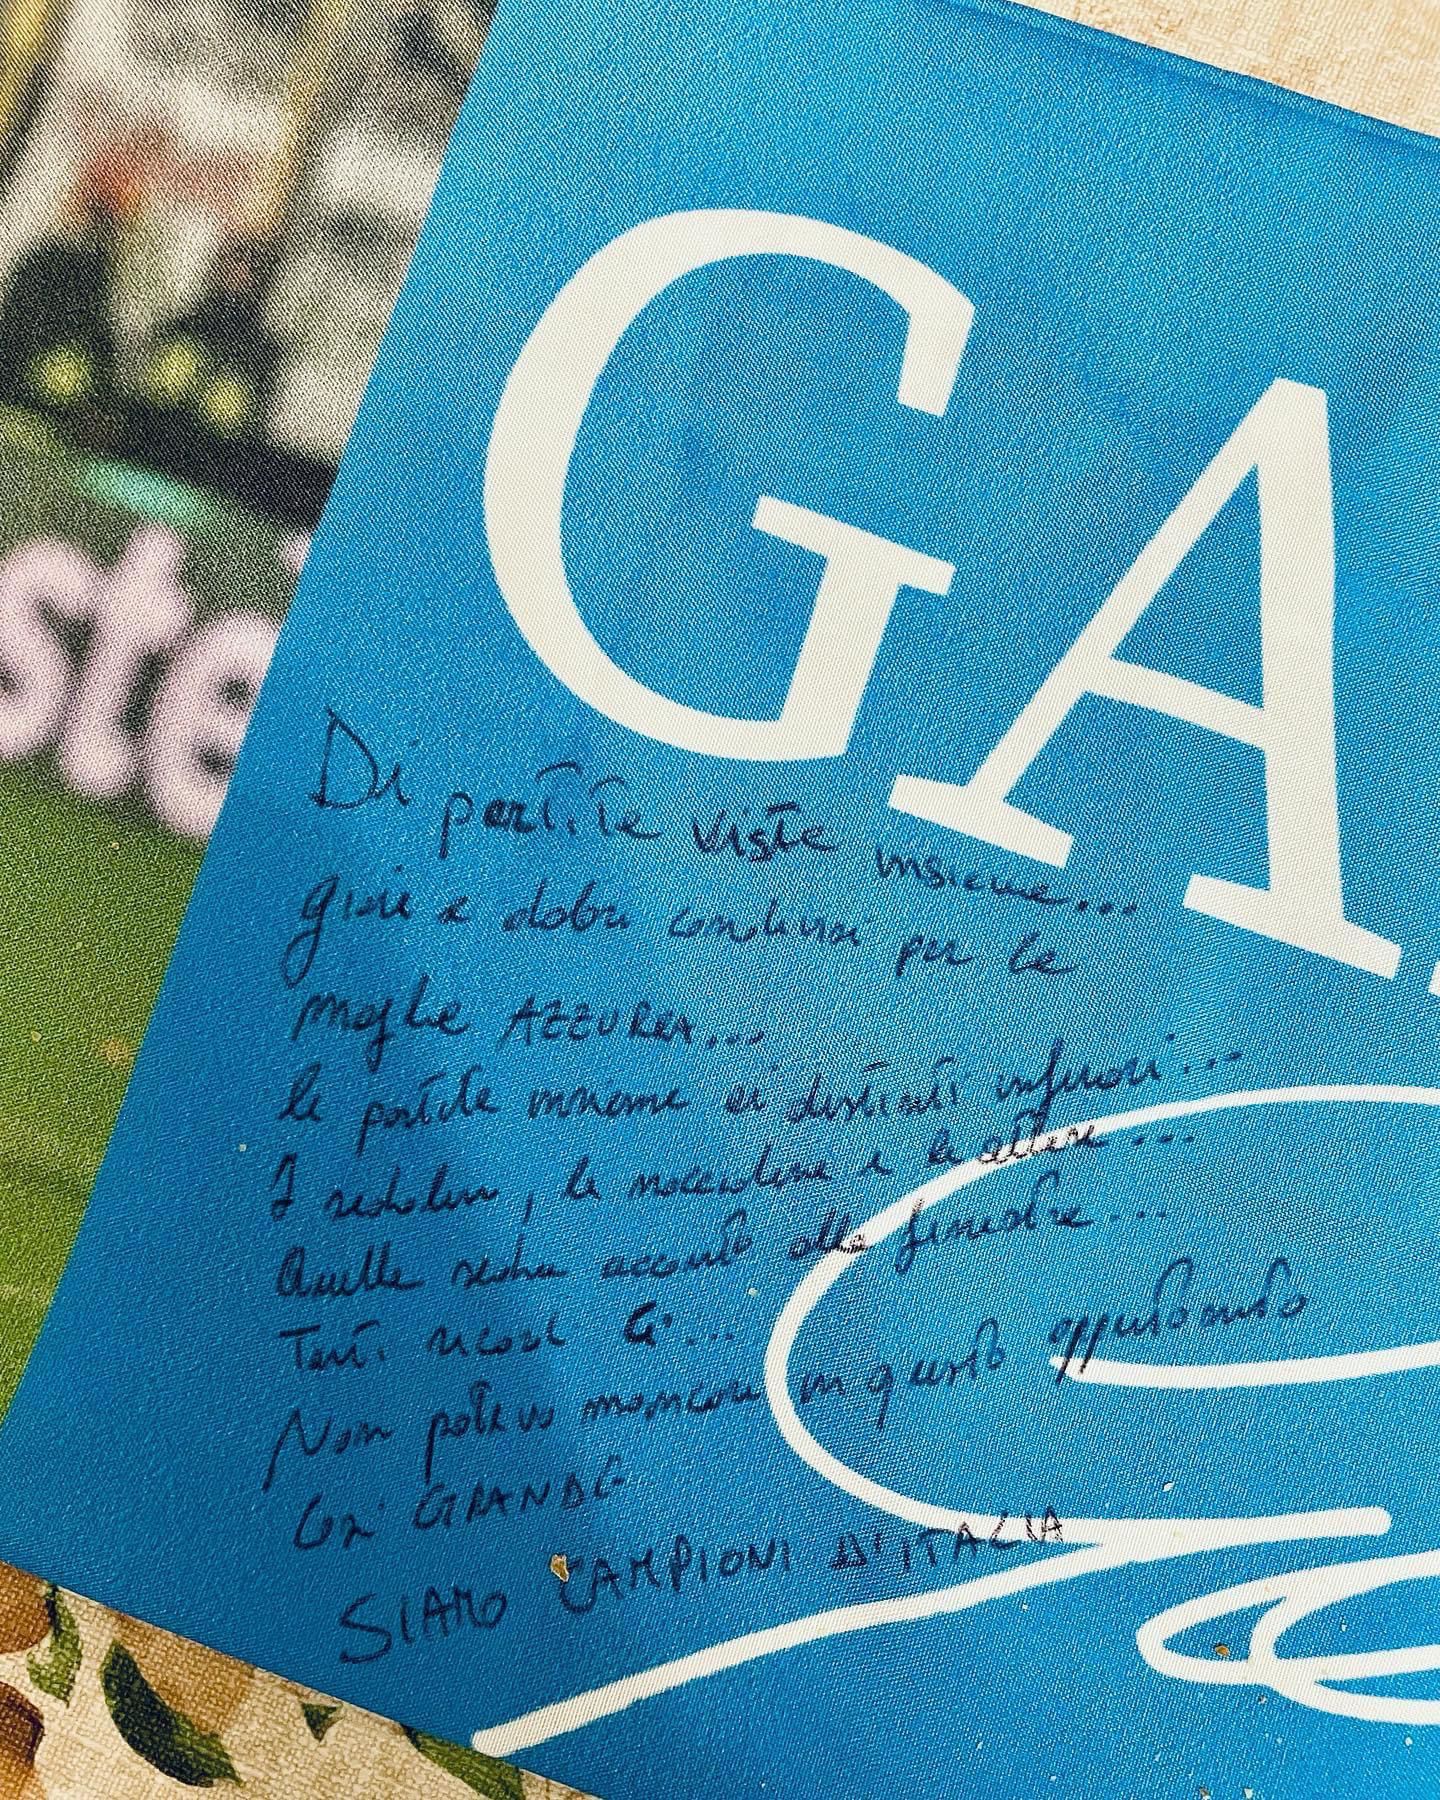 GA
ste
Di partite viste insieme...
gioie e dolori condivisi per la
maglia AZZURRA...
le partite insieme ai distinti inferiori...
I sediolini, le noccioline e le attese...
Quella sedia accanto alla finestra...
Tanti ricordi G...
Non potevo mancare in questo appuntamento
Così GRANDE
SIAMO CAMPIONI D'ITALIA